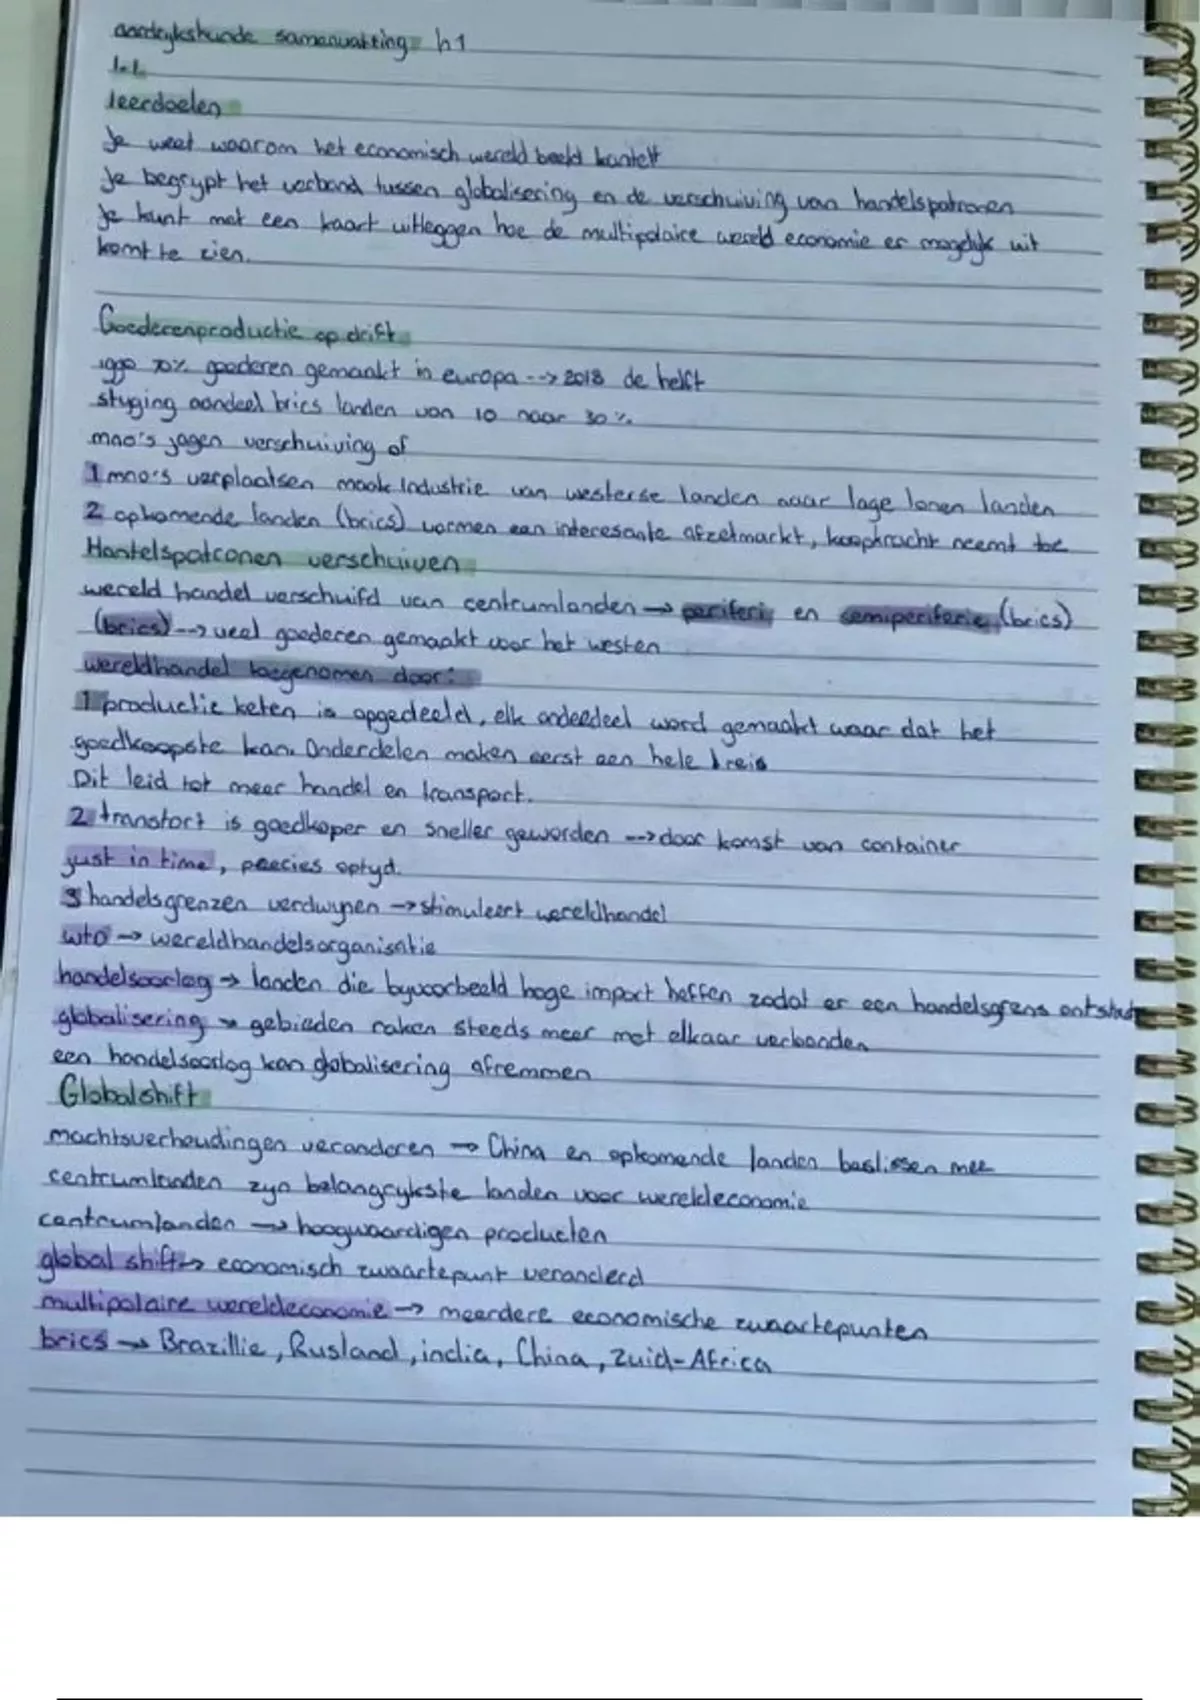 aardrykskunde samenvatting h1
1.1
leerdoelen
Je weet waarom het economisch wereld beeld kantelt
Je begrypt het verband tussen globalisering en de verschuiving van handelspatronen
Je kunt met een kaart uitleggen hoe de multipolaire wereld economie er mogelyk uit
komt te zien.
Goederenproductie op drift
1990 70% goederen gemaakt in europa --> 2018 de helft
styging aandeel brics landen van 10 naar 30%
mno's jagen verschuiving of
1 mno's verplaatsen maak Industrie van westerse landen naar lage lonen landen
2 opkomende landen (brics) vormen een interesante afzetmarkt, koopkracht neemt toe
Hantelspatronen verschuiven
wereld handel verschuifd van centrumlanden → periferi en semiperiferie (brics)
(brics) --> veel goederen gemaakt voor het westen
wereldhandel toegenomen door:
1 productie keten is opgedeeld, elk onderdeel word gemaakt waar dat het
goedkoopste kan. Onderdelen maken eerst een hele kreis
Dit leid tot meer handel en transport.
2 transtort is goedkoper en sneller geworden --> door komst van container
just in time, precies optyd.
3 handelsgrenzen verdwynen → stimuleert wereldhandel
wto → wereldhandelsorganisatie
handelsoorlog → landen die byvoorbeeld hoge import heffen zodat er een handelsgrens ontstaat
globalisering → gebieden raken steeds meer met elkaar verbonden
een handelsoorlog kan globalisering afremmen
Globalshift
machtsverhoudingen veranderen → China en opkomende landen beslissen mee
centrumlanden zyn belangrykste landen voor wereldeconomie
centrumlanden → hoogwaardigen producten
global shift → economisch zwaartepunt veranderd
multipolaire wereldeconomie → meerdere economische zwaartepunten
brics → Brazillie, Rusland, india, China, Zuid-Africa